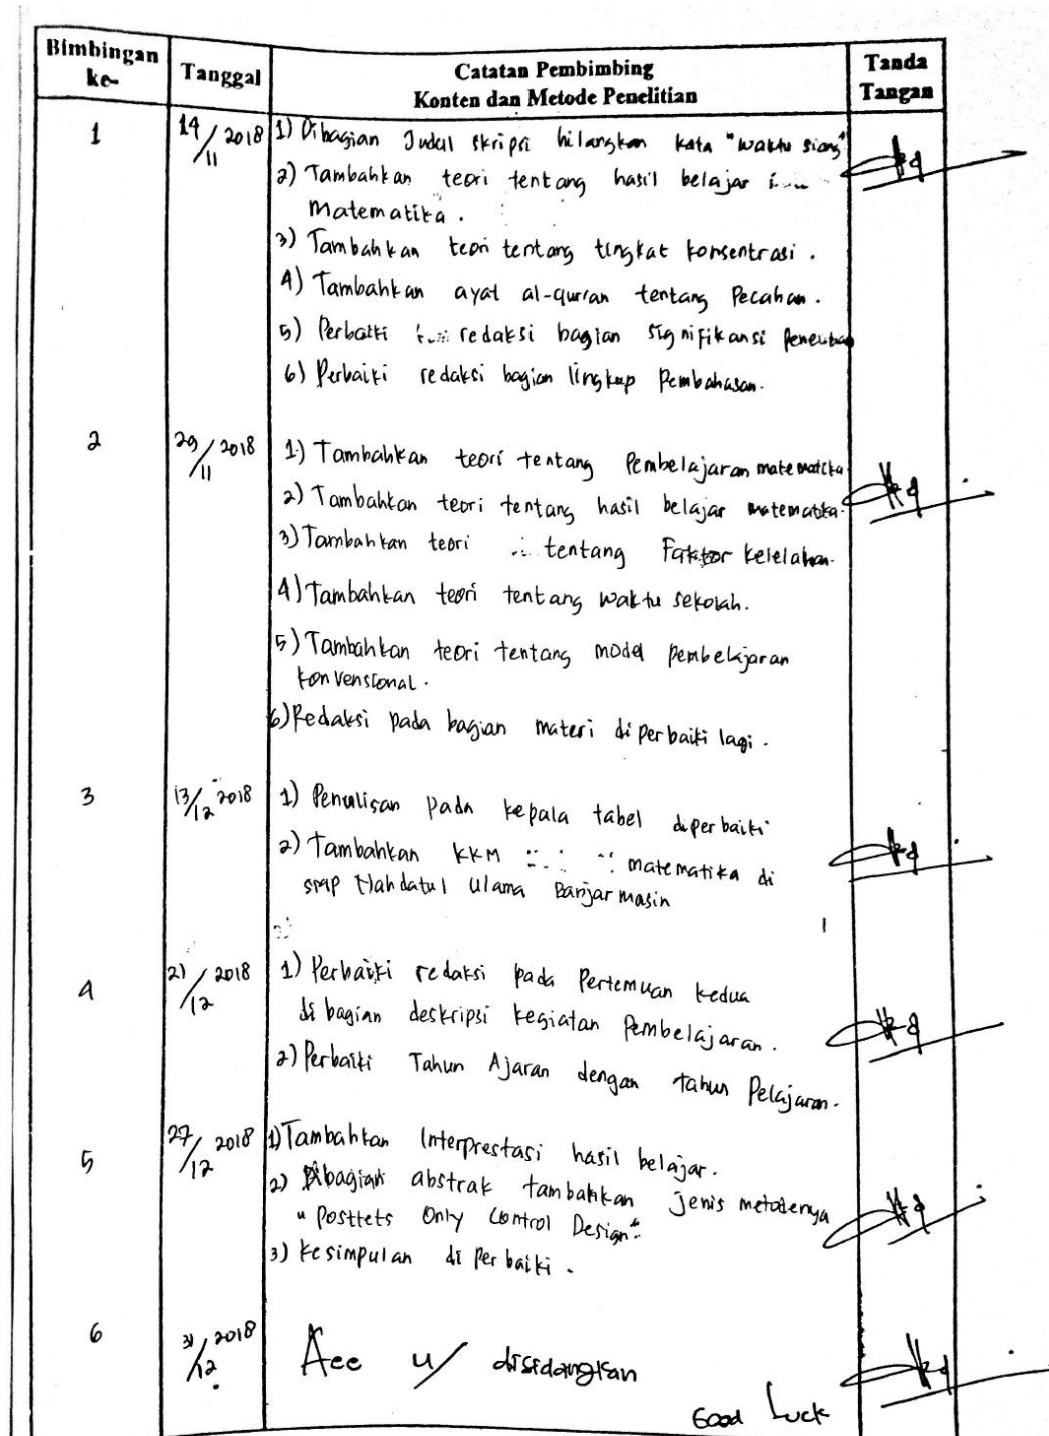 Bimbingan ke- Tanggal Catatan Pembimbing Konten dan Metode Penelitian Tanda Tangan
1 19/11 2018 1) Dibagian Judul skripsi hilangkan kata "waktu siang"
2) Tambahkan teori tentang hasil belajar
Matematika.
3) Tambahkan teori tentang tingkat konsentrasi.
4) Tambahkan ayat al-qur'an tentang Pecahan.
5) Perbaiki redaksi bagian signifikansi Penelitian
6) Perbaiki redaksi bagian lingkup Pembahasan.
2 29/11 2018 1) Tambahkan teori tentang Pembelajaran matematika
2) Tambahkan teori tentang hasil belajar matematika.
3) Tambahkan teori tentang Faktor kelelahan.
4) Tambahkan teori tentang waktu sekolah.
5) Tambahkan teori tentang model pembelajaran
konvensional.
6) Redaksi pada bagian materi diperbaiki lagi.
3 13/12 2018 1) Penulisan pada kepala tabel diperbaiki
2) Tambahkan KKM matematika di
SMP Nahdatul Ulama Banjarmasin
4 21/12 2018 1) Perbaiki redaksi pada Pertemuan kedua
di bagian deskripsi kegiatan Pembelajaran.
2) Perbaiki Tahun Ajaran dengan tahun Pelajaran.
5 27/12 2018 1) Tambahkan Interprestasi hasil belajar.
2) Dibagian abstrak tambahkan jenis metodenya
"Posttets Only Control Design".
3) Kesimpulan diperbaiki.
6 31/12 2018 Acc u/ disidangkan
Good Luck